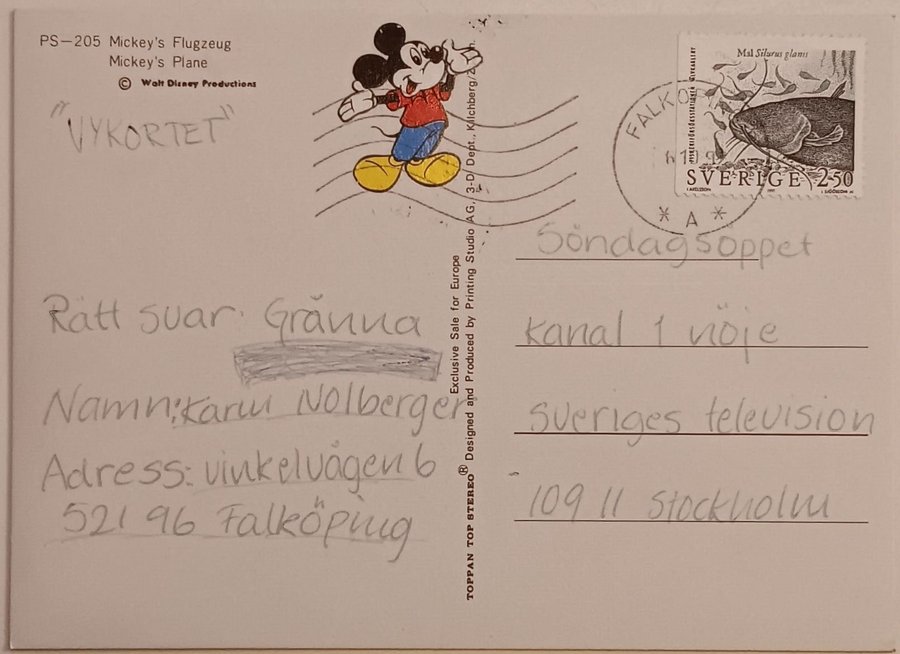 PS—205 Mickey's Flugzeug
Mickey's Plane
© Walt Disney Productions
"VYKORTET"
Rätt svar: Gränna
Namn: Karin Nolberger
Adress: Vinkelvägen 6
521 96 Falköping
TOPPAN TOP STEREO® Designed and Produced by Printing Studio AG, 3-D Dept., Kilchberg/Z
Exclusive Sale for Europe
FALKÖ
* A *
Mal Silurus glanis
SVERIGE 250
Söndagsöppet
Kanal 1 nöje
Sveriges television
109 11 Stockholm